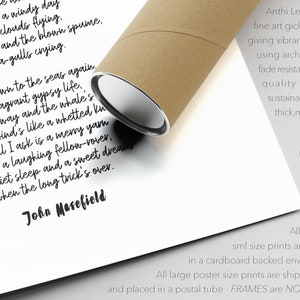 a windy day
clouds flying,
and the blown spume,
a-gulls crying.
own to the seas again
agrant gypsy life,
way and the whale's
ind's like a whetted kn
I ask is a merry yarn
a laughing fellow-rover
iet sleep and a sweet dream
when the long trick's over.
John Masefield
Anthi Le
fine art gicl
giving vibra
using arch
fade resista
quality
sustaina
thick,r
All
sml size prints ar
in a cardboard backed env
All large poster size prints are ship
and placed in a postal tube - FRAMES are NO